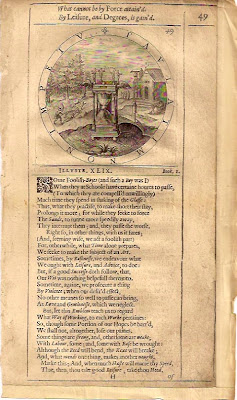 What cannot be by Force attain'd,
By Leisure, and Degrees, is gain'd.
49
ILLVSTR. XLIX. Book. 1.
SOme Foolish Boyes (and such a Boy was I)
When they at Schoole have certaine houres to passe,
(To which they are compell'd unwillingly)
Much time they spend in shaking of the Glasse:
Thus, what they practise, to make short their stay,
Prolongs it more; for while they seeke to force
The Sands, to runne more speedily away,
They interrupt them; and, they passe the worse.
Right so, in other things, with us it fares;
(And, seeming wise, we act a foolish part)
For, otherwhile, what Time alone prepares,
We seeke to make the subject of an Art.
Sometimes, by Rashnesse, we endeavour what
We ought with Leisure, and Advice, to doe:
But, if a good Successe doth follow, that,
Our Wit was nothing helpefull thereunto.
Sometime, againe, we prosecute a thing
By Violence; when our desir'd effect,
No other meanes so well to passe can bring,
As Love and Gentlenesse, which we neglect.
But, let this Emblem teach us to regard
What Way of Working, to each Worke pertaines:
So, though some Portion of our Hopes be hard,
We shall not, altogether, lose our paines.
Some things are strong, and, othersome are weake;
With Labour, some; and, some with Ease be wrought:
Although the Reed will bend, the Kexe will breake;
And, what mends one thing, makes another naught.
Marke this; And, when much Haste will marre thy Speed,
That, then, thou take good Leisure, take thou Heed.
Of